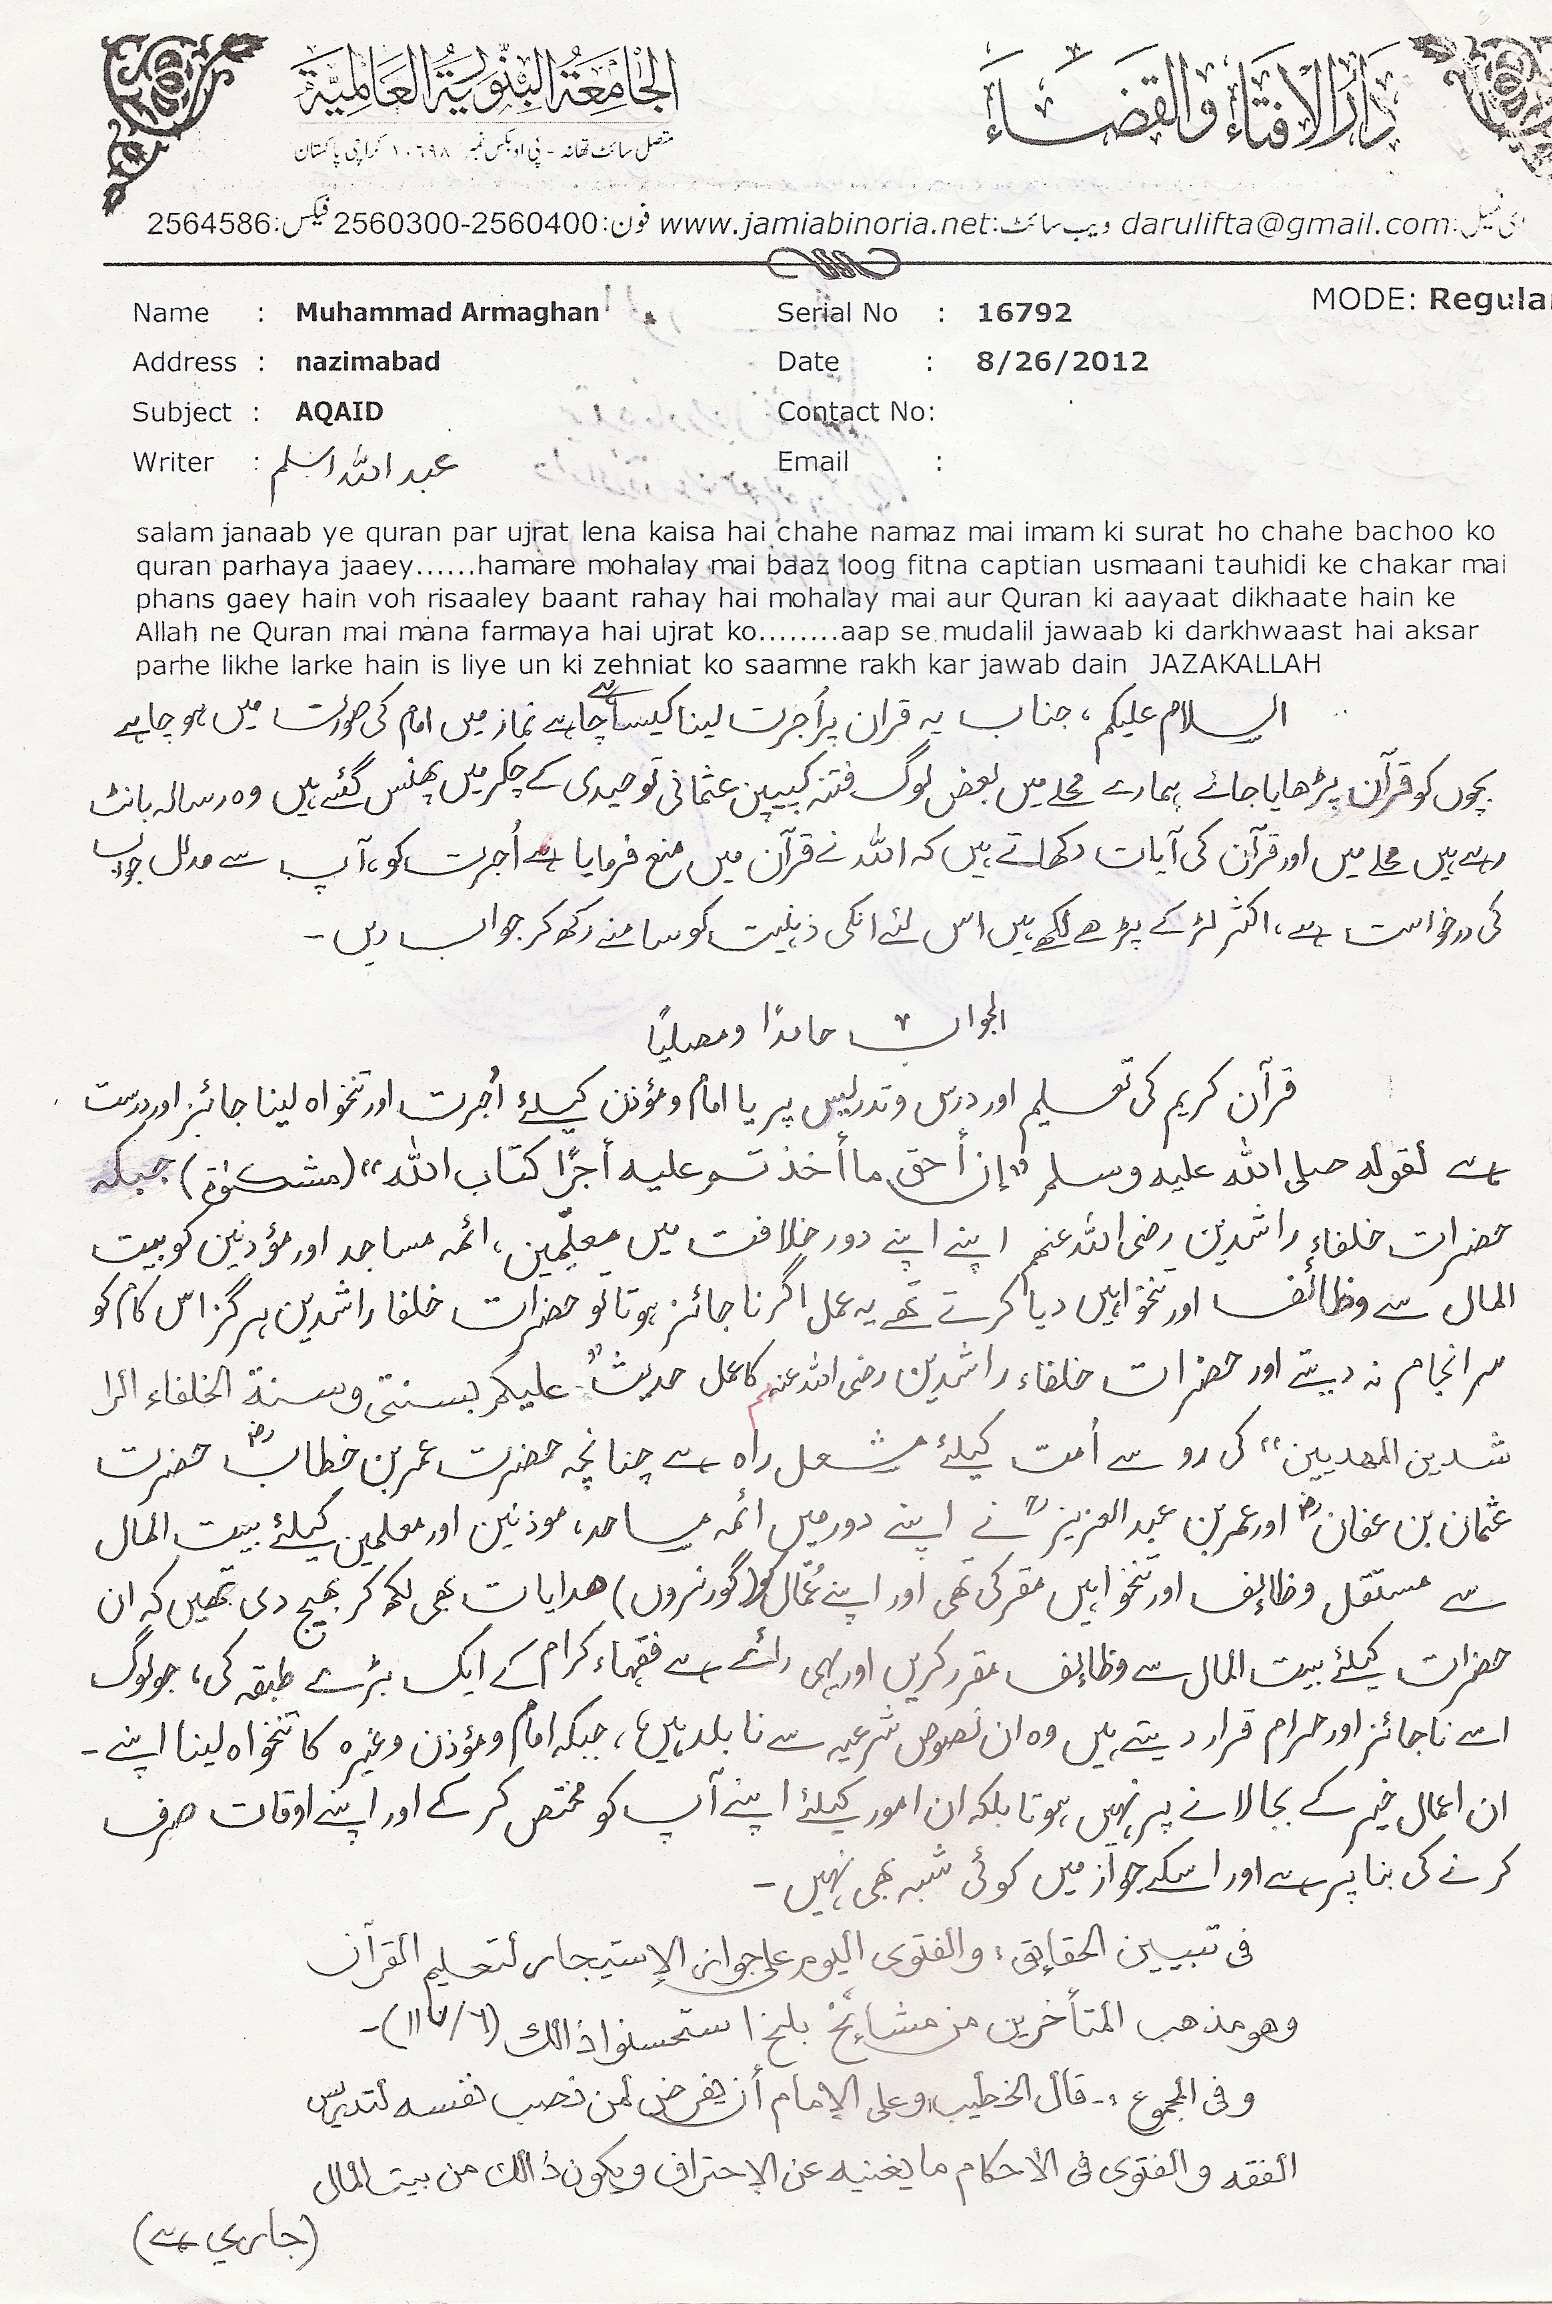 دَارُ الافتَاء والقَضَاء
الجَامعَةُ البِنّورِيَّةُ العَالَمِيَّة
متصل سائٹ تھانہ - پی او بکس نمبر ۱۰۶۹۸ کراچی پاکستان
ای میل: darulifta@gmail.com ویب سائٹ: www.jamiabinoria.net فون: 2560300-2560400 فیکس: 2564586
MODE: Regular
Name : Muhammad Armaghan Serial No : 16792
Address : nazimabad Date : 8/26/2012
Subject : AQAID Contact No:
Writer : عبد اللہ اسلم Email :
salam janaab ye quran par ujrat lena kaisa hai chahe namaz mai imam ki surat ho chahe bachoo ko
quran parhaya jaaey......hamare mohalay mai baaz loog fitna captian usmaani tauhidi ke chakar mai
phans gaey hain voh risaaley baant rahay hai mohalay mai aur Quran ki aayaat dikhaate hain ke
Allah ne Quran mai mana farmaya hai ujrat ko........aap se mudalil jawaab ki darkhwaast hai aksar
parhe likhe larke hain is liye un ki zehniat ko saamne rakh kar jawab dain JAZAKALLAH
السلام علیکم، جناب یہ قران پر اُجرت لینا کیسا ہے چاہے نماز میں امام کی صورت میں ہو چاہے
بچوں کو قرآن پڑھایا جائے ہمارے محلے میں بعض لوگ فتنہ کیپٹن عثمانی توحیدی کے چکر میں پھنس گئے ہیں وہ رسالہ بانٹ
رہے ہیں محلے میں اور قرآن کی آیات دکھاتے ہیں کہ اللہ نے قرآن میں منع فرمایا ہے اُجرت کو، آپ سے مدلل جواب
کی درخواست ہے، اکثر لڑکے پڑھے لکھے ہیں اس لئے انکی ذہنیت کو سامنے رکھ کر جواب دیں ۔
الجواب حامدًا ومصلیًا
قرآن کریم کی تعلیم اور درس و تدریس پر یا امام و مؤذن کیلئے اُجرت اور تنخواہ لینا جائز اور درست
ہے لقوله صلی اللہ علیہ وسلم ”إن أحق ما أخذتم علیه أجرًا کتاب اللہ“ (مشکوٰۃ) جبکہ
حضرات خلفاءِ راشدین رضی اللہ عنہم اپنے اپنے دور خلافت میں معلّمین، ائمہ مساجد اور مؤذنین کو بیت
المال سے وظائف اور تنخواہیں دیا کرتے تھے یہ عمل اگر ناجائز ہوتا تو حضرات خلفا راشدین ہرگز اس کام کو
سرانجام نہ دیتے اور حضرات خلفاء راشدین رضی اللہ عنہم کا عمل حدیث ”علیکم بسنتی وسنة الخلفاء الرا
شدین المهدیین“ کی رو سے اُمت کیلئے مشعل راہ ہے چنانچہ حضرت عمر بن خطابؓ حضرت
عثمان بن عفانؓ اور عمر بن عبد العزیزؒ نے اپنے دور میں ائمہ مساجد، موذنین اور معلمین کیلئے بیت المال
سے مستقل وظایف اور تنخواہیں مقرر کی تھی اور اپنے عُمّال کو (گورنروں) هدایات بھی لکھ کر بھیج دی تھیں کہ ان
حضرات کیلئے بیت المال سے وظایف مقرر کریں اور یہی رائے ہے فقہاء کرام کے ایک بڑے طبقہ کی، جو لوگ
اسے ناجائز اور حرام قرار دیتے ہیں وہ ان نصوص شرعیہ سے نابلد ہیں، جبکہ امام و مؤذن وغیرہ کا تنخواہ لینا اپنے ۔
ان اعمال خیر کے بجا لانے پر نہیں ہوتا بلکہ ان امور کیلئے اپنے آپ کو مختص کر کے اور اپنے اوقات صرف
کرنے کی بنا پر ہے اور اسکے جواز میں کوئی شبہ بھی نہیں ۔
فی تبیین الحقایق: والفتوی الیوم علی جواز الإستیجار لتعلیم القرآن
وهو مذهب المتأخرین من مشائخ بلخ استحسنوا ذالك (۶/۱۱۷) ۔
وفی المجموع :۔ قال الخطیب وعلی الإمام أن یفرض لمن نصب نفسه لتدریس
الفقه والفتوی فی الأحکام ما یغنیه عن الإحتراف ویکون ذالك من بیت المال
(جاری ہے)